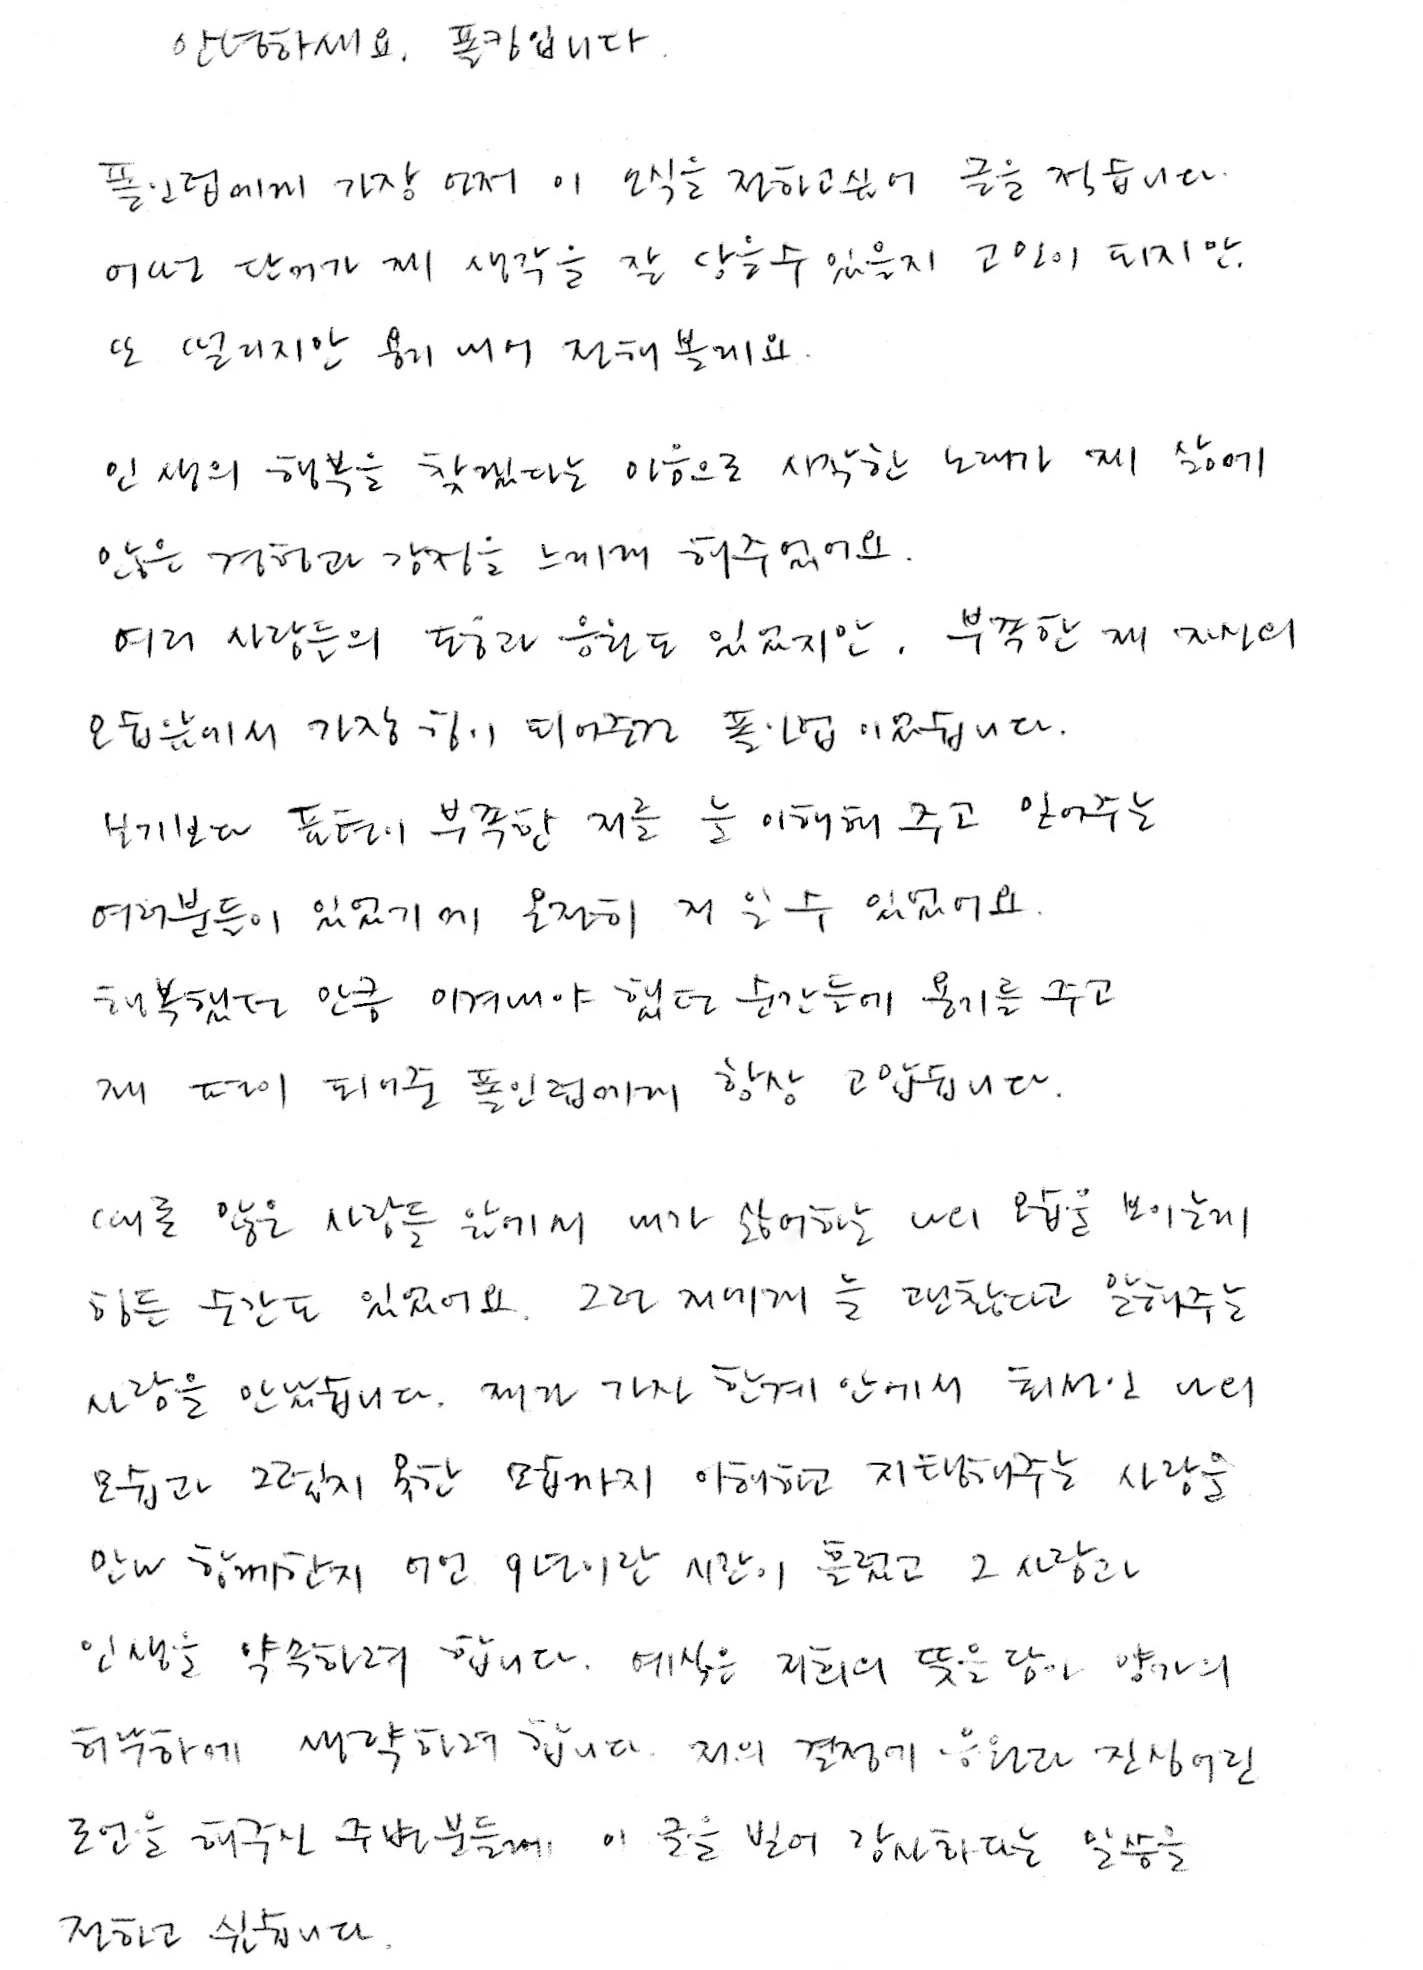 안녕하세요. 폴킴입니다.
폴인럽에게 가장 먼저 이 소식을 전하고싶어 글을 적습니다.
어떤 단어가 제 생각을 잘 담을수 있을지 고민이 되지만,
또 떨리지만 용기 내어 전해볼게요.
인생의 행복을 찾겠다는 마음으로 시작한 노래가 제 삶에
많은 경험과 감정을 느끼게 해주었어요.
여러 사람들의 도움과 응원도 있었지만, 부족한 제 자신의
모습앞에서 가장 힘이 되어주건 폴인럽이었습니다.
보기보다 표현이 부족한 저를 늘 이해해 주고 믿어주는
여러분들이 있었기에 온전히 저 일 수 있었어요.
행복했던 만큼 이겨내야 했던 순간들에 용기를 주고
제 편이 되어준 폴인럽에게 항상 고맙습니다.
때로 많은 사람들 앞에서 내가 싫어하는 나의 모습을 보이는게
힘든 순간도 있었어요. 그런 저에게 늘 괜찮다고 말해주는
사람을 만났습니다. 제가 가진 한계 안에서 최선인 나의
모습과 그렇지 못한 모습까지 이해하고 지탱해주는 사람을
만나 함께한지 어언 9년이란 시간이 흘렀고 그 사람과
인생을 약속하려 합니다. 예식은 저희의 뜻을 담아 양가의
허락하에 생략하려 합니다. 저의 결정에 응원과 진심어린
조언을 해주신 주변분들께 이 글을 빌어 감사하다는 말씀을
전하고 싶습니다.